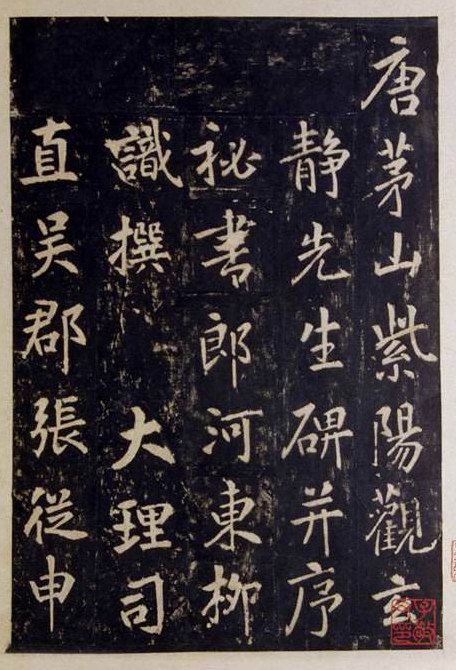 唐茅山紫陽觀玄
靜先生碑并序
秘書郎河東柳
識撰 大理司
直吴郡張從申